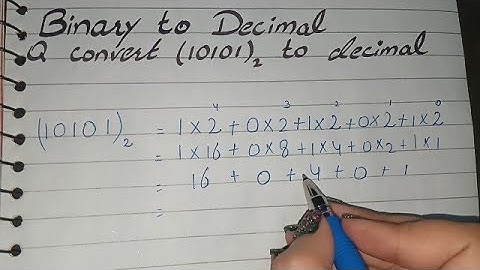 Binary to Decimal
Q convert (10101)₂ to decimal
(10101)₂ = 1×2⁴ + 0×2³ + 1×2² + 0×2¹ + 1×2⁰
= 1×16 + 0×8 + 1×4 + 0×2 + 1×1
= 16 + 0 + 4 + 0 + 1
=